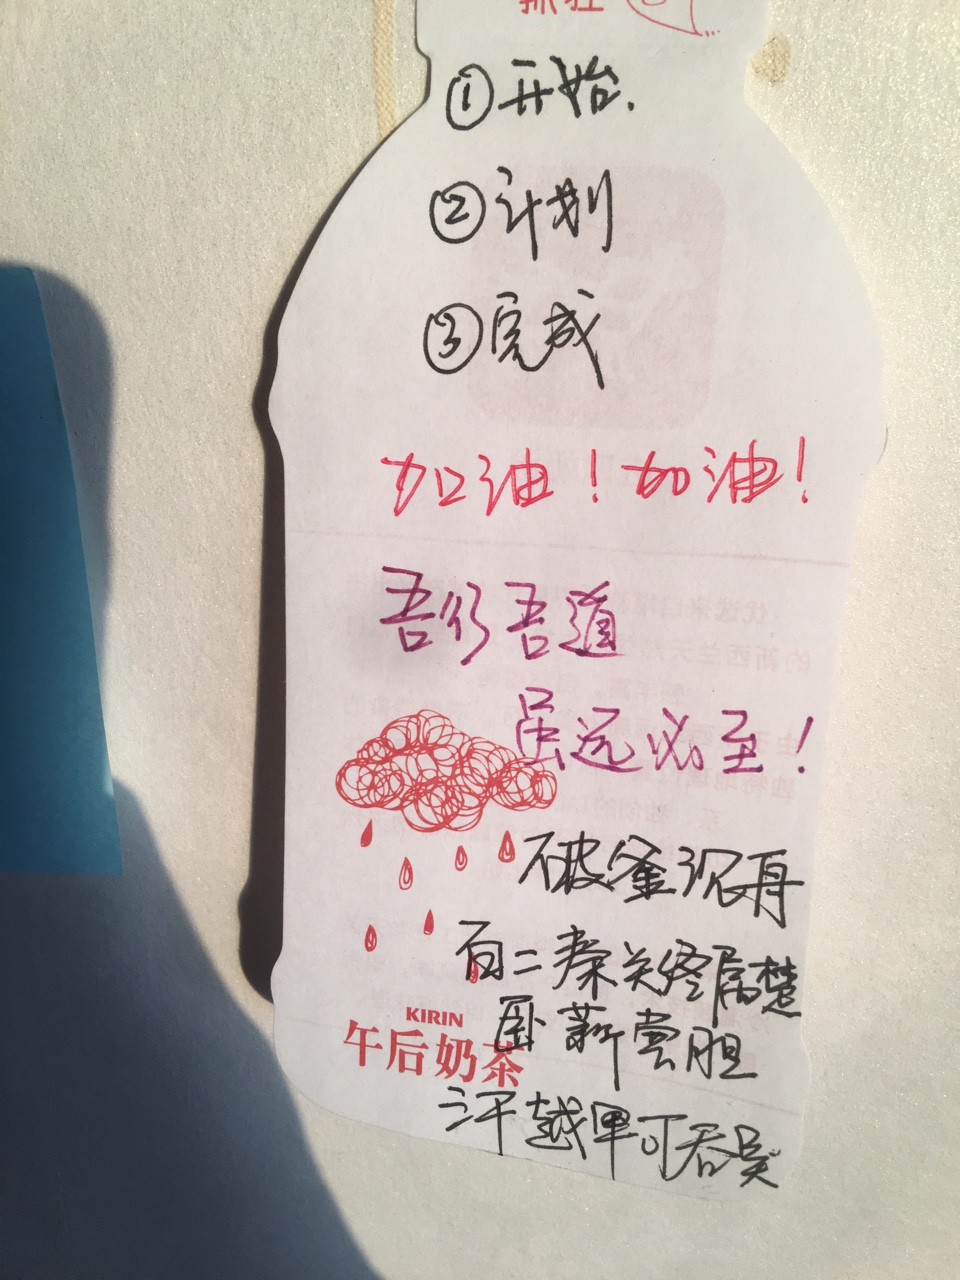 抓狂
①开始.
②计划
③完成
加油！加油！
吾行吾道
虽远必至！
破釜沉舟
百二秦关终属楚
卧薪尝胆
三千越甲可吞吴
KIRIN
午后奶茶